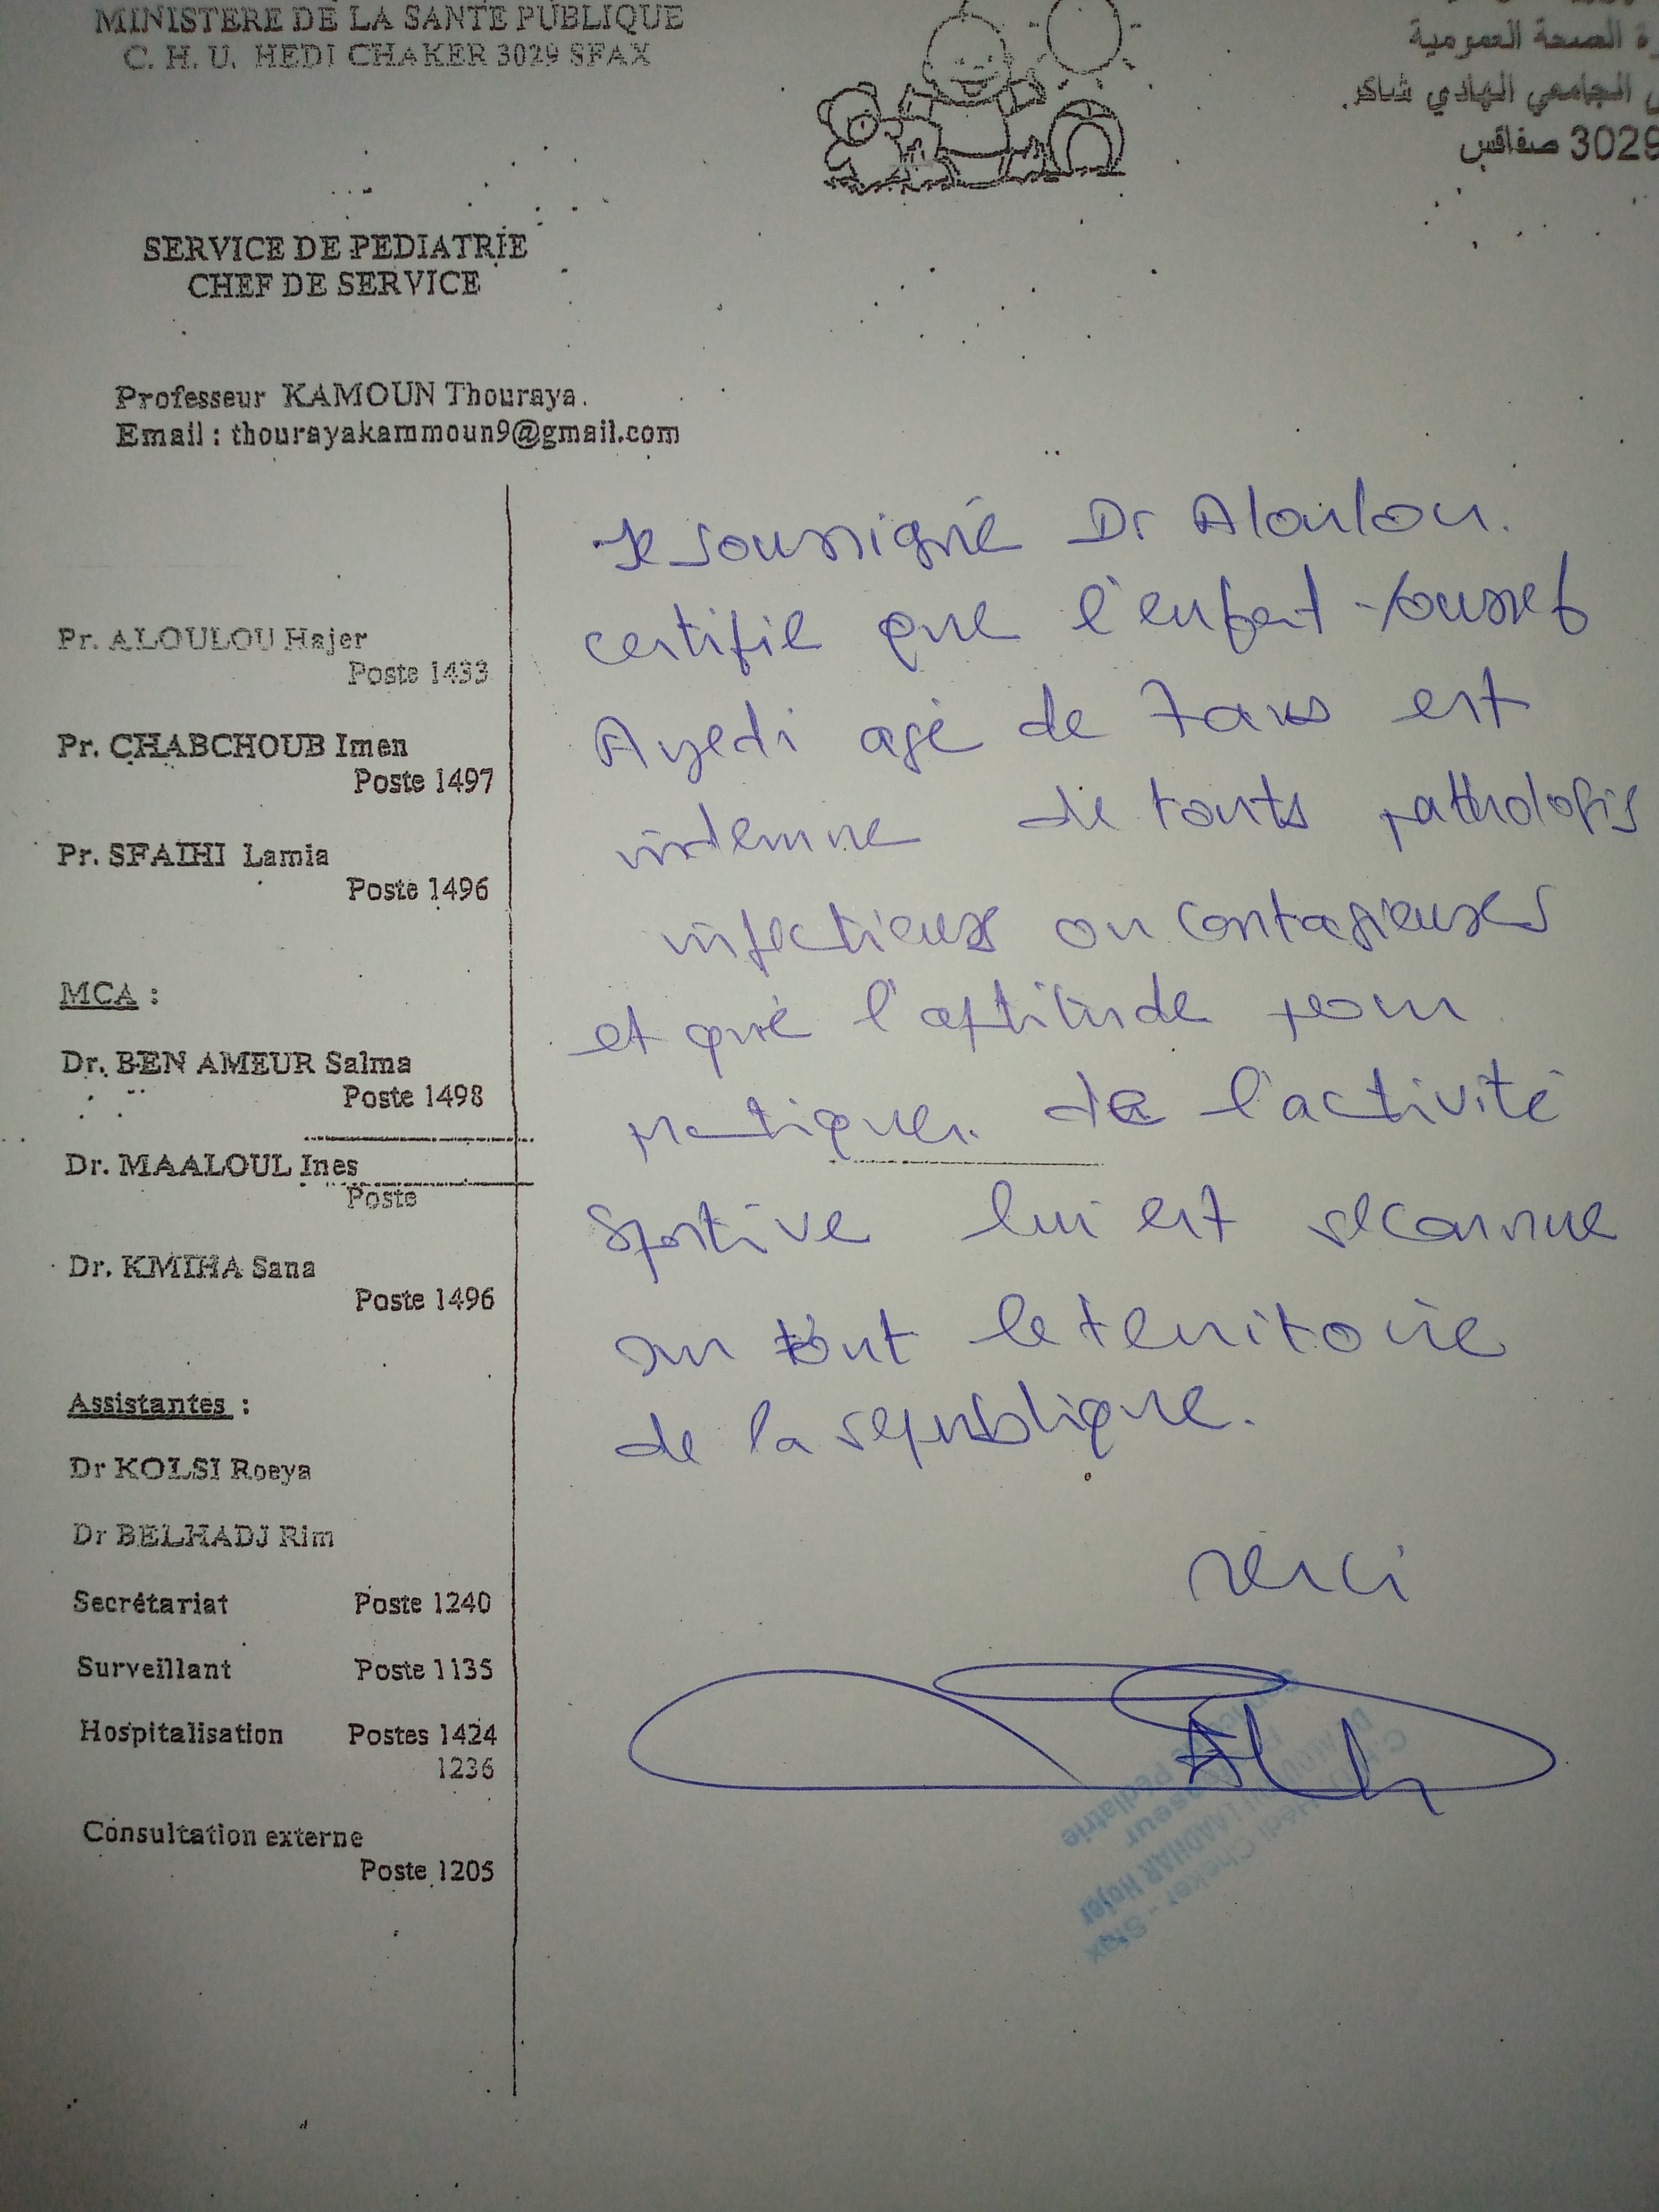 MINISTERE DE LA SANTE PUBLIQUE
C. H. U. HEDI CHAKER 3029 SFAX
الصحة العمومية
الجامعي الهادي شاكر.
3029 صفاقس
SERVICE DE PEDIATRIE
CHEF DE SERVICE
Professeur KAMOUN Thouraya.
Email : thourayakammoun9@gmail.com
Pr. ALOULOU Hajer
Poste 1433
Pr. CHABCHOUB Imen
Poste 1497
Pr. SFAIHI Lamia
Poste 1496
MCA :
Dr. BEN AMEUR Salma
Poste 1498
Dr. MAALOUL Ines
Poste
Dr. KMIHA Sana
Poste 1496
Assistantes :
Dr KOLSI Roeya
Dr BELHADJ Rim
Secrétariat Poste 1240
Surveillant Poste 1135
Hospitalisation Postes 1424
1236
Consultation externe
Poste 1205
Je soussigné Dr Aloulou.
certifie que l'enfant Youssef
Ayedi agé de 7 ans est
indemne de touts pathologis
infectieuses ou contagieuses
et que l'aptitude pour
pratiquer de l'activité
Sportive lui est reconnue
sur tout le territoire
de la republique.
Merci
Pédiatrie
LAADHAR Hajer
Hédi Cheker - Sfax